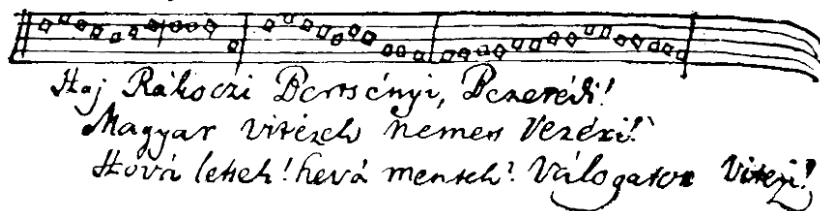 Haj Rákoczi Bersényi, Bezerédi!
Magyar vitézek nemes Vezéri!
Hová lettek! hová mentek? Válogatott Vitézi!